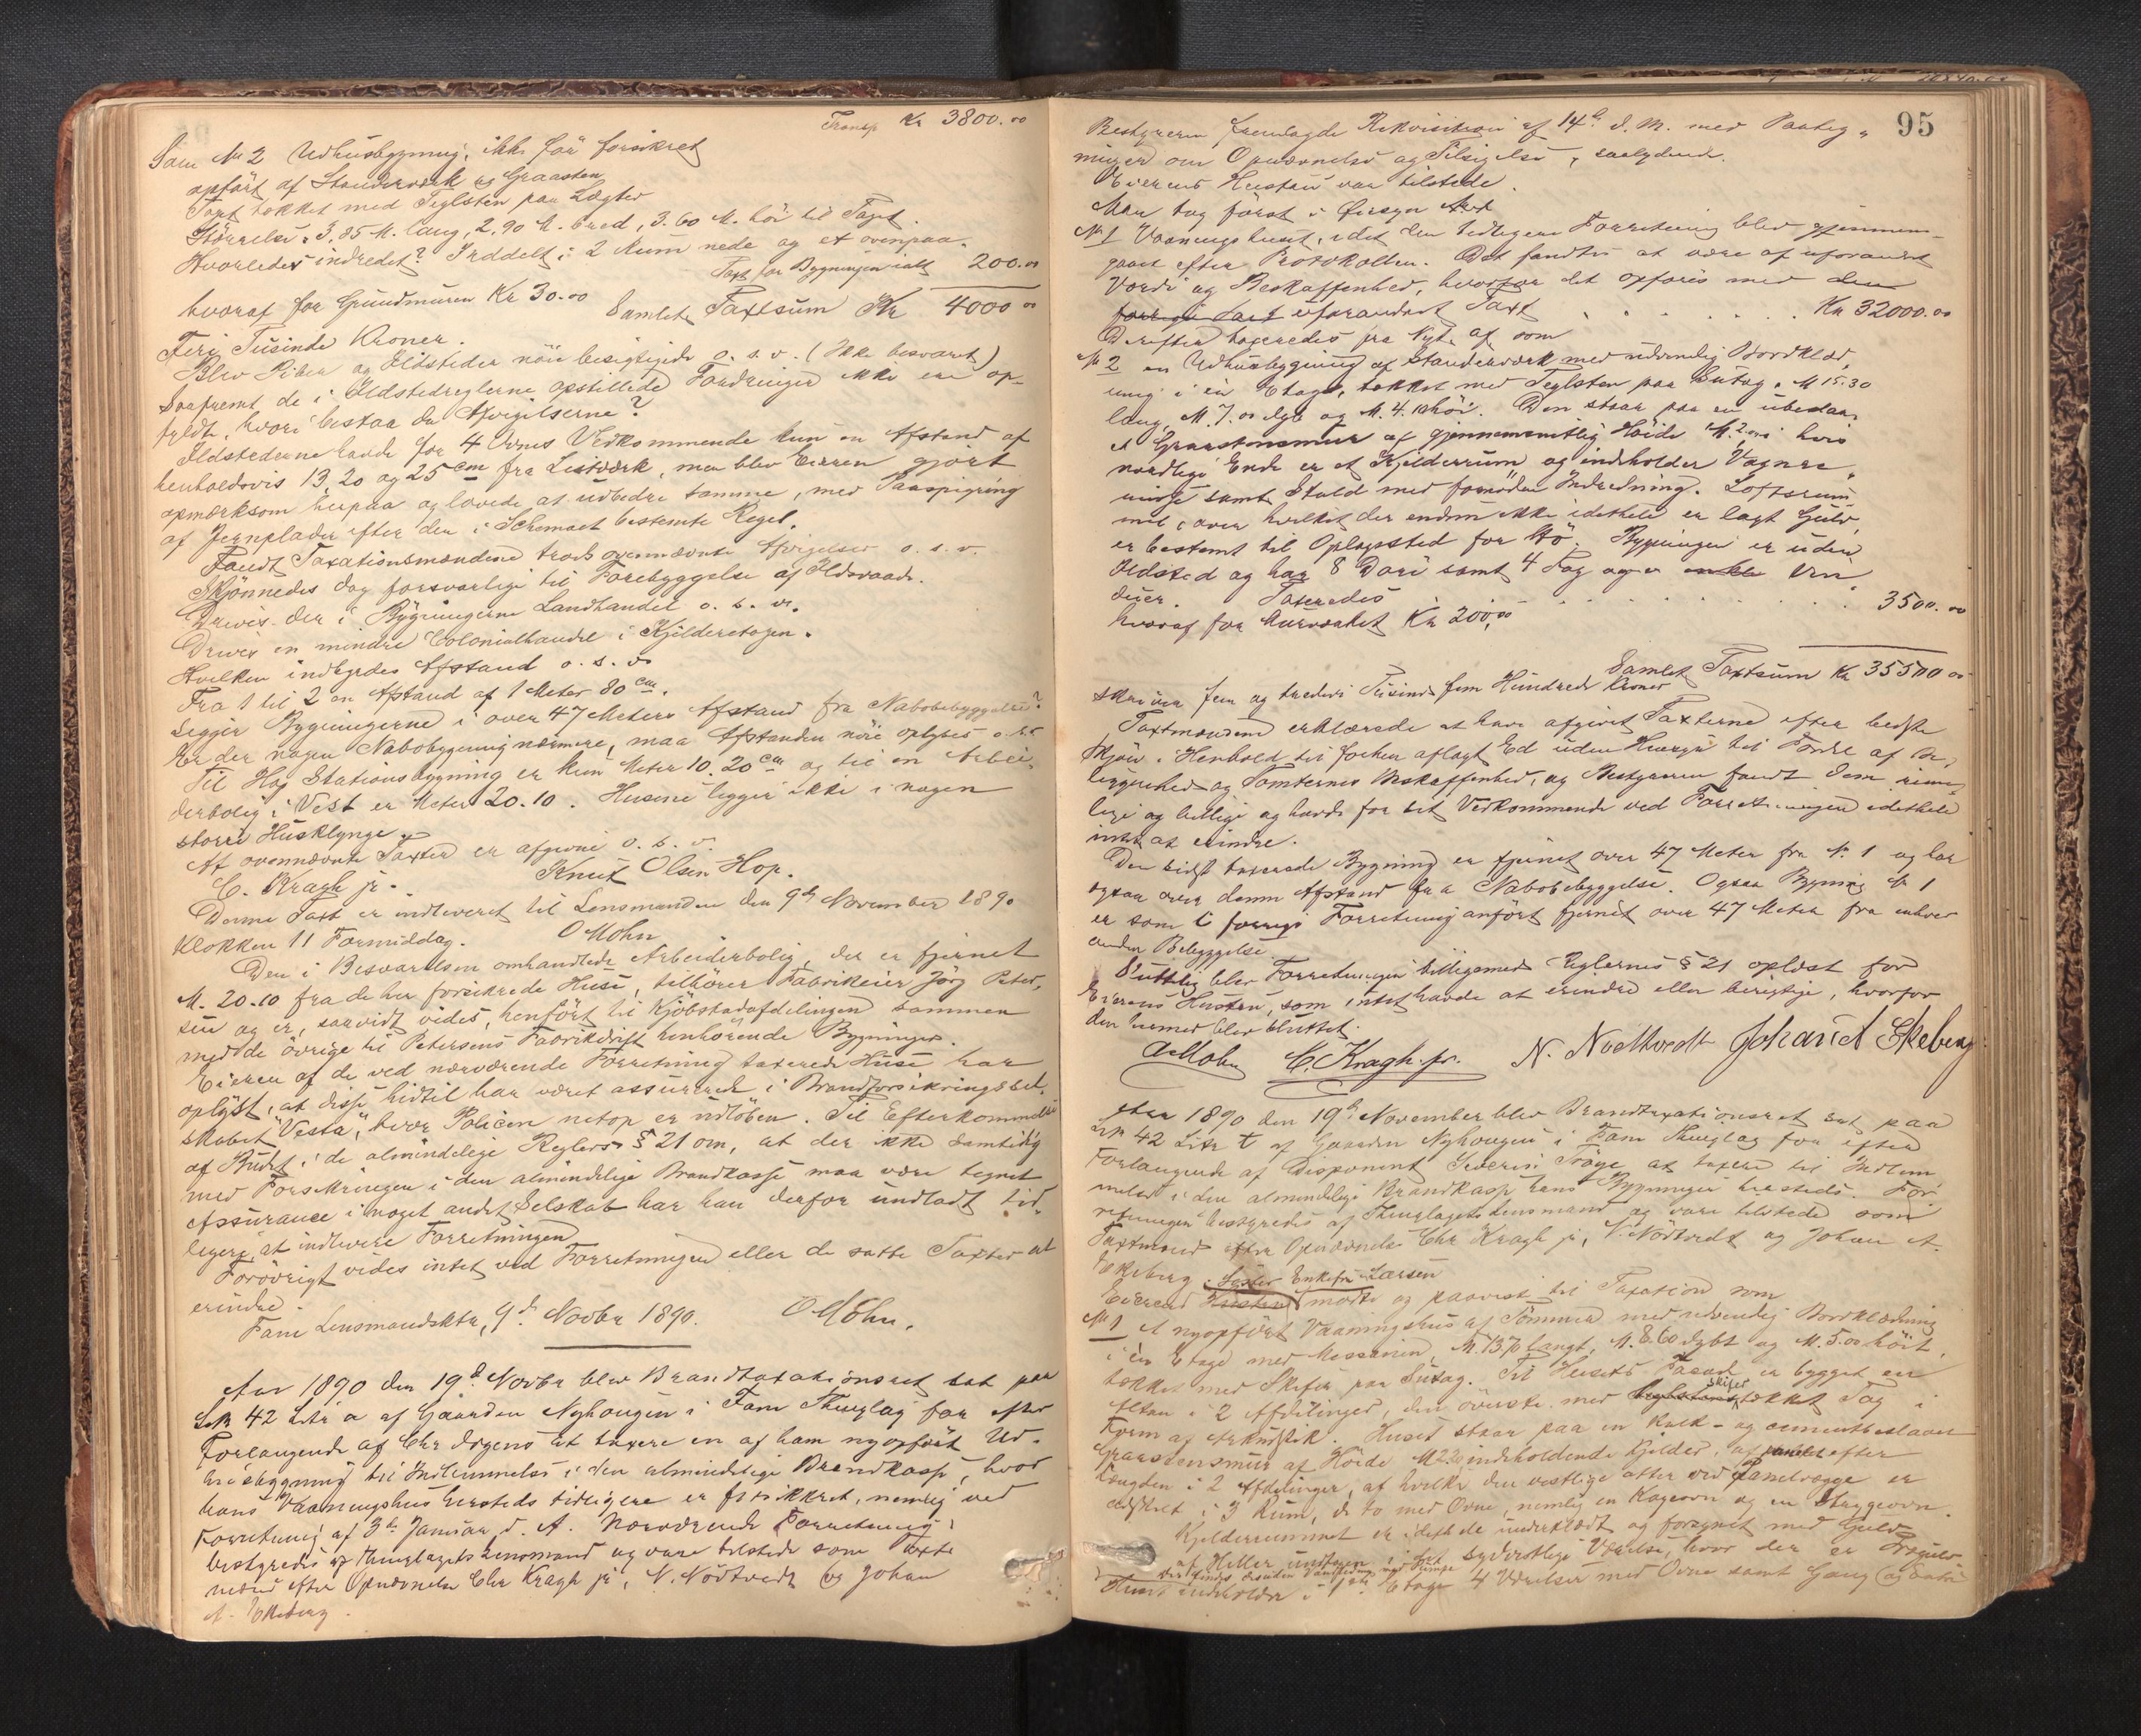 Transp Kr 3800.00
Som No 2 Udhusbygning, ikke før forsikret
opført af Standerværk og Graasten
Taget tækket med Teglsten paa Lægter
Størrelse: 3,85 M. lang, 2,90 M. bred, 3.60 M. høi til Taget.
Hvorledes indredet? Inddelt i 2 Rum nede og et ovenpaa.
Taxt for Bygningen ialt 200.00
hvoraf for Grundmuren Kr 30.00
Samlet Taxtsum Kr 4000 00
Fire Tusinde Kroner.
Blev Piber og Ildsteder nøie besigtigede o. s. v. (Ikke besvaret)
Saafremt de i Ildstedreglerne opstillede Fordringer ikke ere op-
fyldte, hvori bestaa da Afvigelserne?
Ildstederne havde for 4 Ovnes Vedkommende kun en Afstand af
henholdsvis 13, 20 og 25 cm fra Listværk, men blev Eieren gjort
opmærksom herpaa og lovede at udbedre samme, med Paaspigring
af Jernplader efter den i Schemaet bestemte Regel.
Fandt Taxationsmændene trods ovennævnte Afvigelser o. s. v.
Skjønnedes dog forsvarlige til Forebyggelse af Ildsvaade.
Drives der i Bygningerne Landhandel o. s. v.
Drives en mindre Colonialhandel i Kjelderetagen.
Hvilken indbyrdes Afstand o. s. v.
Fra 1 til 2 en Afstand af 1 Meter 80 cm.
Ligger Bygningerne i over 47 Meters Afstand fra Nabobebyggelse?
Er der nogen Nabobygning nærmere, maa Afstanden nøie oplyses o.s.v.
Til Hop Stationsbygning er kun Meter 10.20 cm og til en Arbei-
derbolig i Vest er Meter 20.10. Husene ligger ikke i nogen
større Husklynge.
At ovennævnte Taxter er afgivne o. s. v.
C. Kragh jr. Knut Olsen Hop.
Denne Taxt er indleveret til Lensmanden den 9de November 1890
Klokken 11 Formiddag. O Mohn
Den i Besvarelsen omhandlede Arbeiderbolig, der er fjernet
M. 20.10 fra de her forsikrede Huse, tilhører Fabrikeier Jörg Peter-
sen og er, saavidt vides, henført til Kjøbstadafdelingen sammen
med de øvrige til Petersens Fabrikdrift henhørende Bygninger.
Eieren af de ved nærværende Forretning taxerede Huse har
oplyst, at disse hidtil har været assurerede i Brandforsikringssel-
skabet "Vesta", hvor Policen netop er udløben. Til Efterkommelse
af Budet i de almindelige Reglers § 21 om, at der ikke samtidig
med Forsikringen i den almindelige Brandkasse maa være tegnet
Assurance i noget andet Selskab har han derfor undladt tid-
ligere at indlevere Forretningen
Forøvrigt vides intet ved Forretningen eller de satte Taxter at
erindre.
Fane Lensmandsktr, 9de Novbr 1890. O Mohn.
Aar 1890 den 19de Novbr blev Brandtaxationsret sat paa
L No 42 Litr a af Gaarden Nyhougen i Fane Thinglag for efter
Forlangende af Chr Irgens at taxere en af ham nyopført Ud-
husbygning til Indlemmelse i den almindelige Brandkasse, hvor
hans Vaaningshus hersteds tidligere er forsikkret, nemlig ved
Forretning af 3de Januar d. A. Nærværende Forretning
bestyredes af Thinglagets Lensmand og vare tilstede som Taxt-
mænd efter Opnævnelse Chr Kragh jr, N. Nödtvedt og Johan
A. Ekeberg.
95
Bestyreren fremlagde Rekvisition af 14de d. M. med Paateg-
ninger om Opnævnelse og Tilsigelse, saalydende.
Eierens Hustru var tilstede.
Man tog først i Øiesyn
No 1 Vaaningshuset, idet den tidligere Forretning blev gjennem-
gaaet efter Protokollen. Det fandtes at være af uforandret
Værdi og Beskaffenhed, hvorfor det opføres med den
forrige Taxt uforandret Taxt . . . . . . Kr 32000.00
Derefter taxeredes fra Nyt af som
No 2 en Udhusbygning af Standerværk med udvendig Bordklæd-
ning i én Etage, tækket med Teglsten paa Sutag, M 15.30
lang, M. 7.00 dyb og M. 4.10 høi. Den staar paa en
Graastensmur af gjennemsnitlig Høide M. 2.00 i hvis
nordlige Ende er et Kjelderrum og indeholder Vogne-
samt Stald med fornøden Indredning. Loftsrum-
met, over hvilket der endnu ikke idethele er lagt Gulv,
er bestemt til Oplagssted for Hö. Bygningen er uden
Ildsted og har 8 Döre samt 4 Fag og Vin-
duer. Taxeredes . . . . . . 3500.00
hvoraf for Murværket Kr 200,00
Samlet Taxtsum Kr 35500 00
skriver fem og tredive Tusinde fem Hundrede Kroner
Taxtmændene erklærede at have afgivet Taxterne efter bedste
Skjøn i Henhold til forhen aflagt Ed uden Hensyn til Fordel af Be-
liggenhed og Tomternes Beskaffenhed, og Bestyreren fandt dem rime-
lige og billige og havde for sit Vedkommende ved Forretningen idethele
intet at erindre.
Den sidst taxerede Bygning er fjernet over 47 Meter fra No 1 og har
ogsaa over denne Afstand fra Nabobebyggelse. Ogsaa Bygning No 1
er som i forrige Forretning anført fjernet over 47 Meter fra enhver
anden Bebyggelse.
Sluttelig blev Forretningen tilligemed Reglernes § 21 oplæst for
Eierens Hustru, som intet havde at erindre eller berigtige, hvorfor
den hermed blev sluttet.
O Mohn C. Kragh jr. N. Nödtvedt Johan A Ekeberg
Aar 1890 den 19de November blev Brandtaxationsret sat paa
L No 42 Litr t af Gaarden Nyhougen i Fane Thinglag for efter
Forlangende af Disponent Severin at taxere til Indlem-
melse i den almindelige Brandkasse hans Bygninger hersteds. For-
retningen bestyredes af Thinglagets Lensmand og vare tilstede som
Taxtmænd efter Opnævnelse Chr Kragh jr, N. Nödtvedt og Johan A.
Ekeberg. Søster Enkefru Larsen
Eierens Hustru mødte og paaviste til Taxation som
No 1 et nyopført Vaaningshus af Tømmer med udvendig Bordklædning
i én Etage med Messanin, M. 13.70 langt, M. 8.60 dybt og M. 5.00 høit,
tækket med Skifer paa Sutag. Til Husets Facade er bygget en
Altan i 2 Afdelinger, den øverste med skifer tækket Tag i
Form af. Huset staar paa en kalk- og cementbeslaaet
Graastensmur af Høide M 2.20 indeholdende Kjelder, afpanelet efter
Længden i 2 Afdelinger, af hvilke den vestlige atter ved Panelvægge er
afskilt i 3 Rum, de to med Ovne, nemlig en Kogeovn og en Strygeovn.
Kjelderrummet er idethele underklædt og forsynet med Gulv
af Heller undtagen i det sydvestlige Værelse, hvor der er Trægulv
der findes desuden Vandledning med Pumpe
Huset indeholder i 1ste Etage 4 Værelser med Ovne samt Gang og